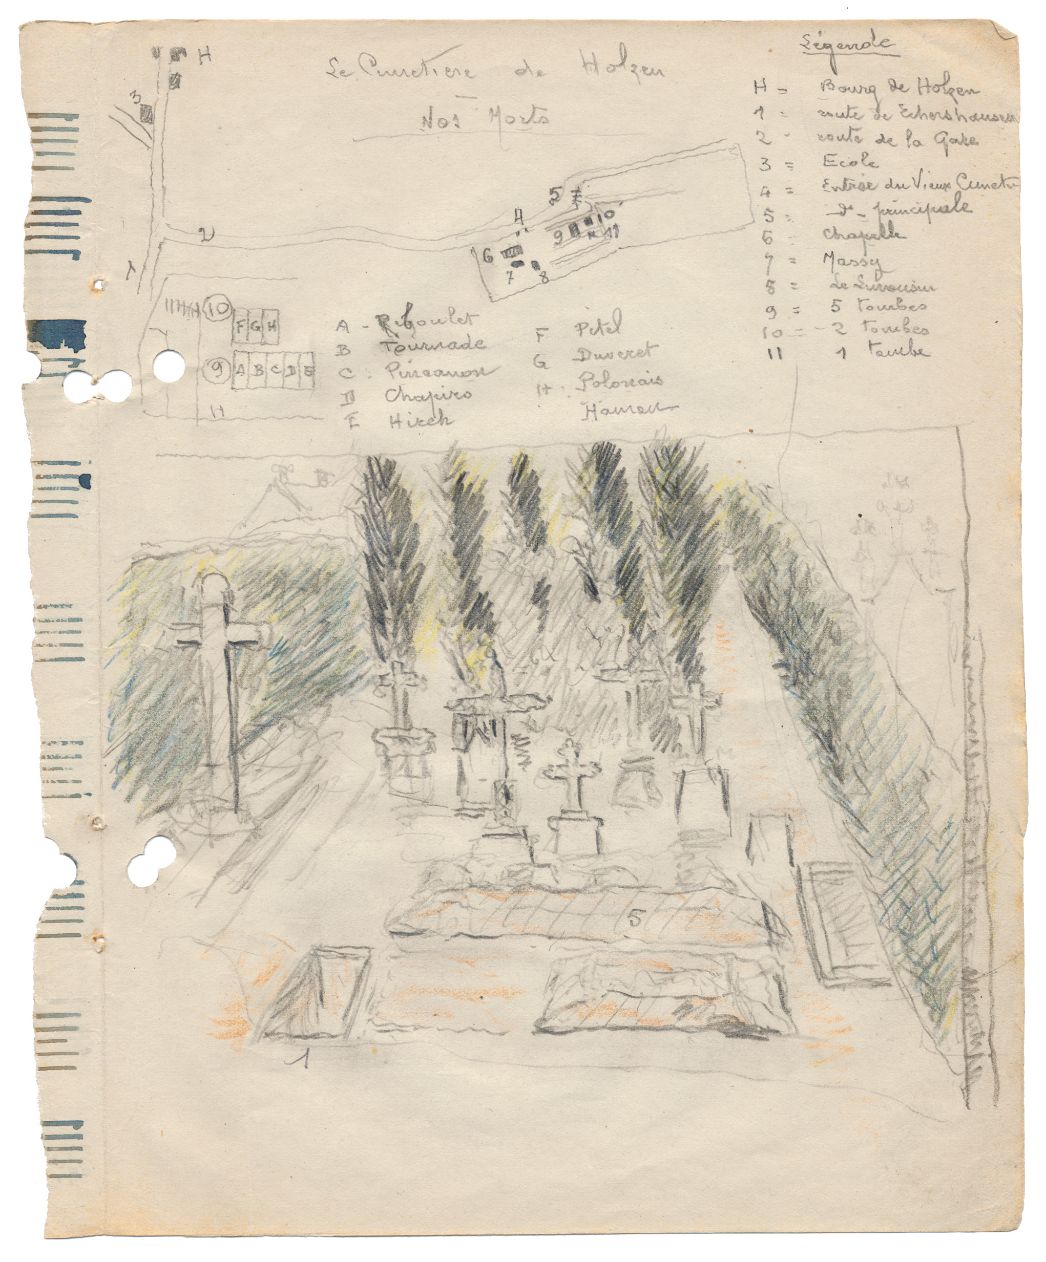 Le Cimetière de Holzen
Nos Morts
Légende
H = Bourg de Holzen
1 = route de Echershausen
2 - route de la Gare
3 = Ecole
4 = Entrée du Vieux Cimeti
5 = -d°- principale
6 - Chapelle
7 = Massy
8 = Le Limousin
9 = 5 tombes
10 = -2 tombes
11 1 tombe
H
3
2
1
5
4
10
9
11
6
7
8
10
F G H
9
A B C D E
H
A - Reboulet
B Tournade
C : Pinganon
D Chapiro
E Hirch
F Pitel
G Duveret
H : Polonais
Hamon
5
1